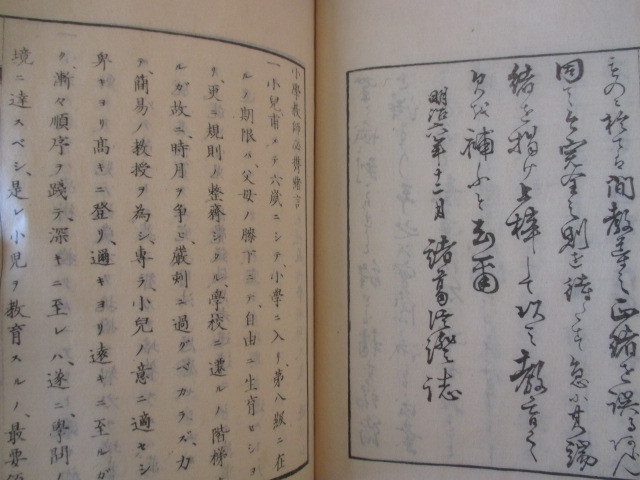 間教導之正緒を誤る
因て其完全之則を待たす急ニ其端
緒を掲け上梓して以て教育之
欠を補ふと云爾
明治六年十二月 諸葛信澄誌
小學教師必携緒言
一 小兒甫メテ六歳ニシテ、小學ニ入リ、第八級ニ在
ルノ期限ハ、父母ノ膝下ニテ、自由ニ生育セシヨ
リ、更ニ規則ノ整齊シタル、學校ニ遷ルノ階梯
ルガ故ニ、時月ヲ爭ヒ嚴刻ニ過グベカラズ、力
テ、簡易ノ教授ヲ為シ、專ラ小兒ノ意ニ適セシ
卑キヨリ高キニ登リ、邇キヨリ遠キニ至ルガ
ク、漸々順序ヲ踐テ、深キニ至レハ、遂ニ學問ノ
境ニ達スベシ、是レ小兒ヲ教育スルノ、最要